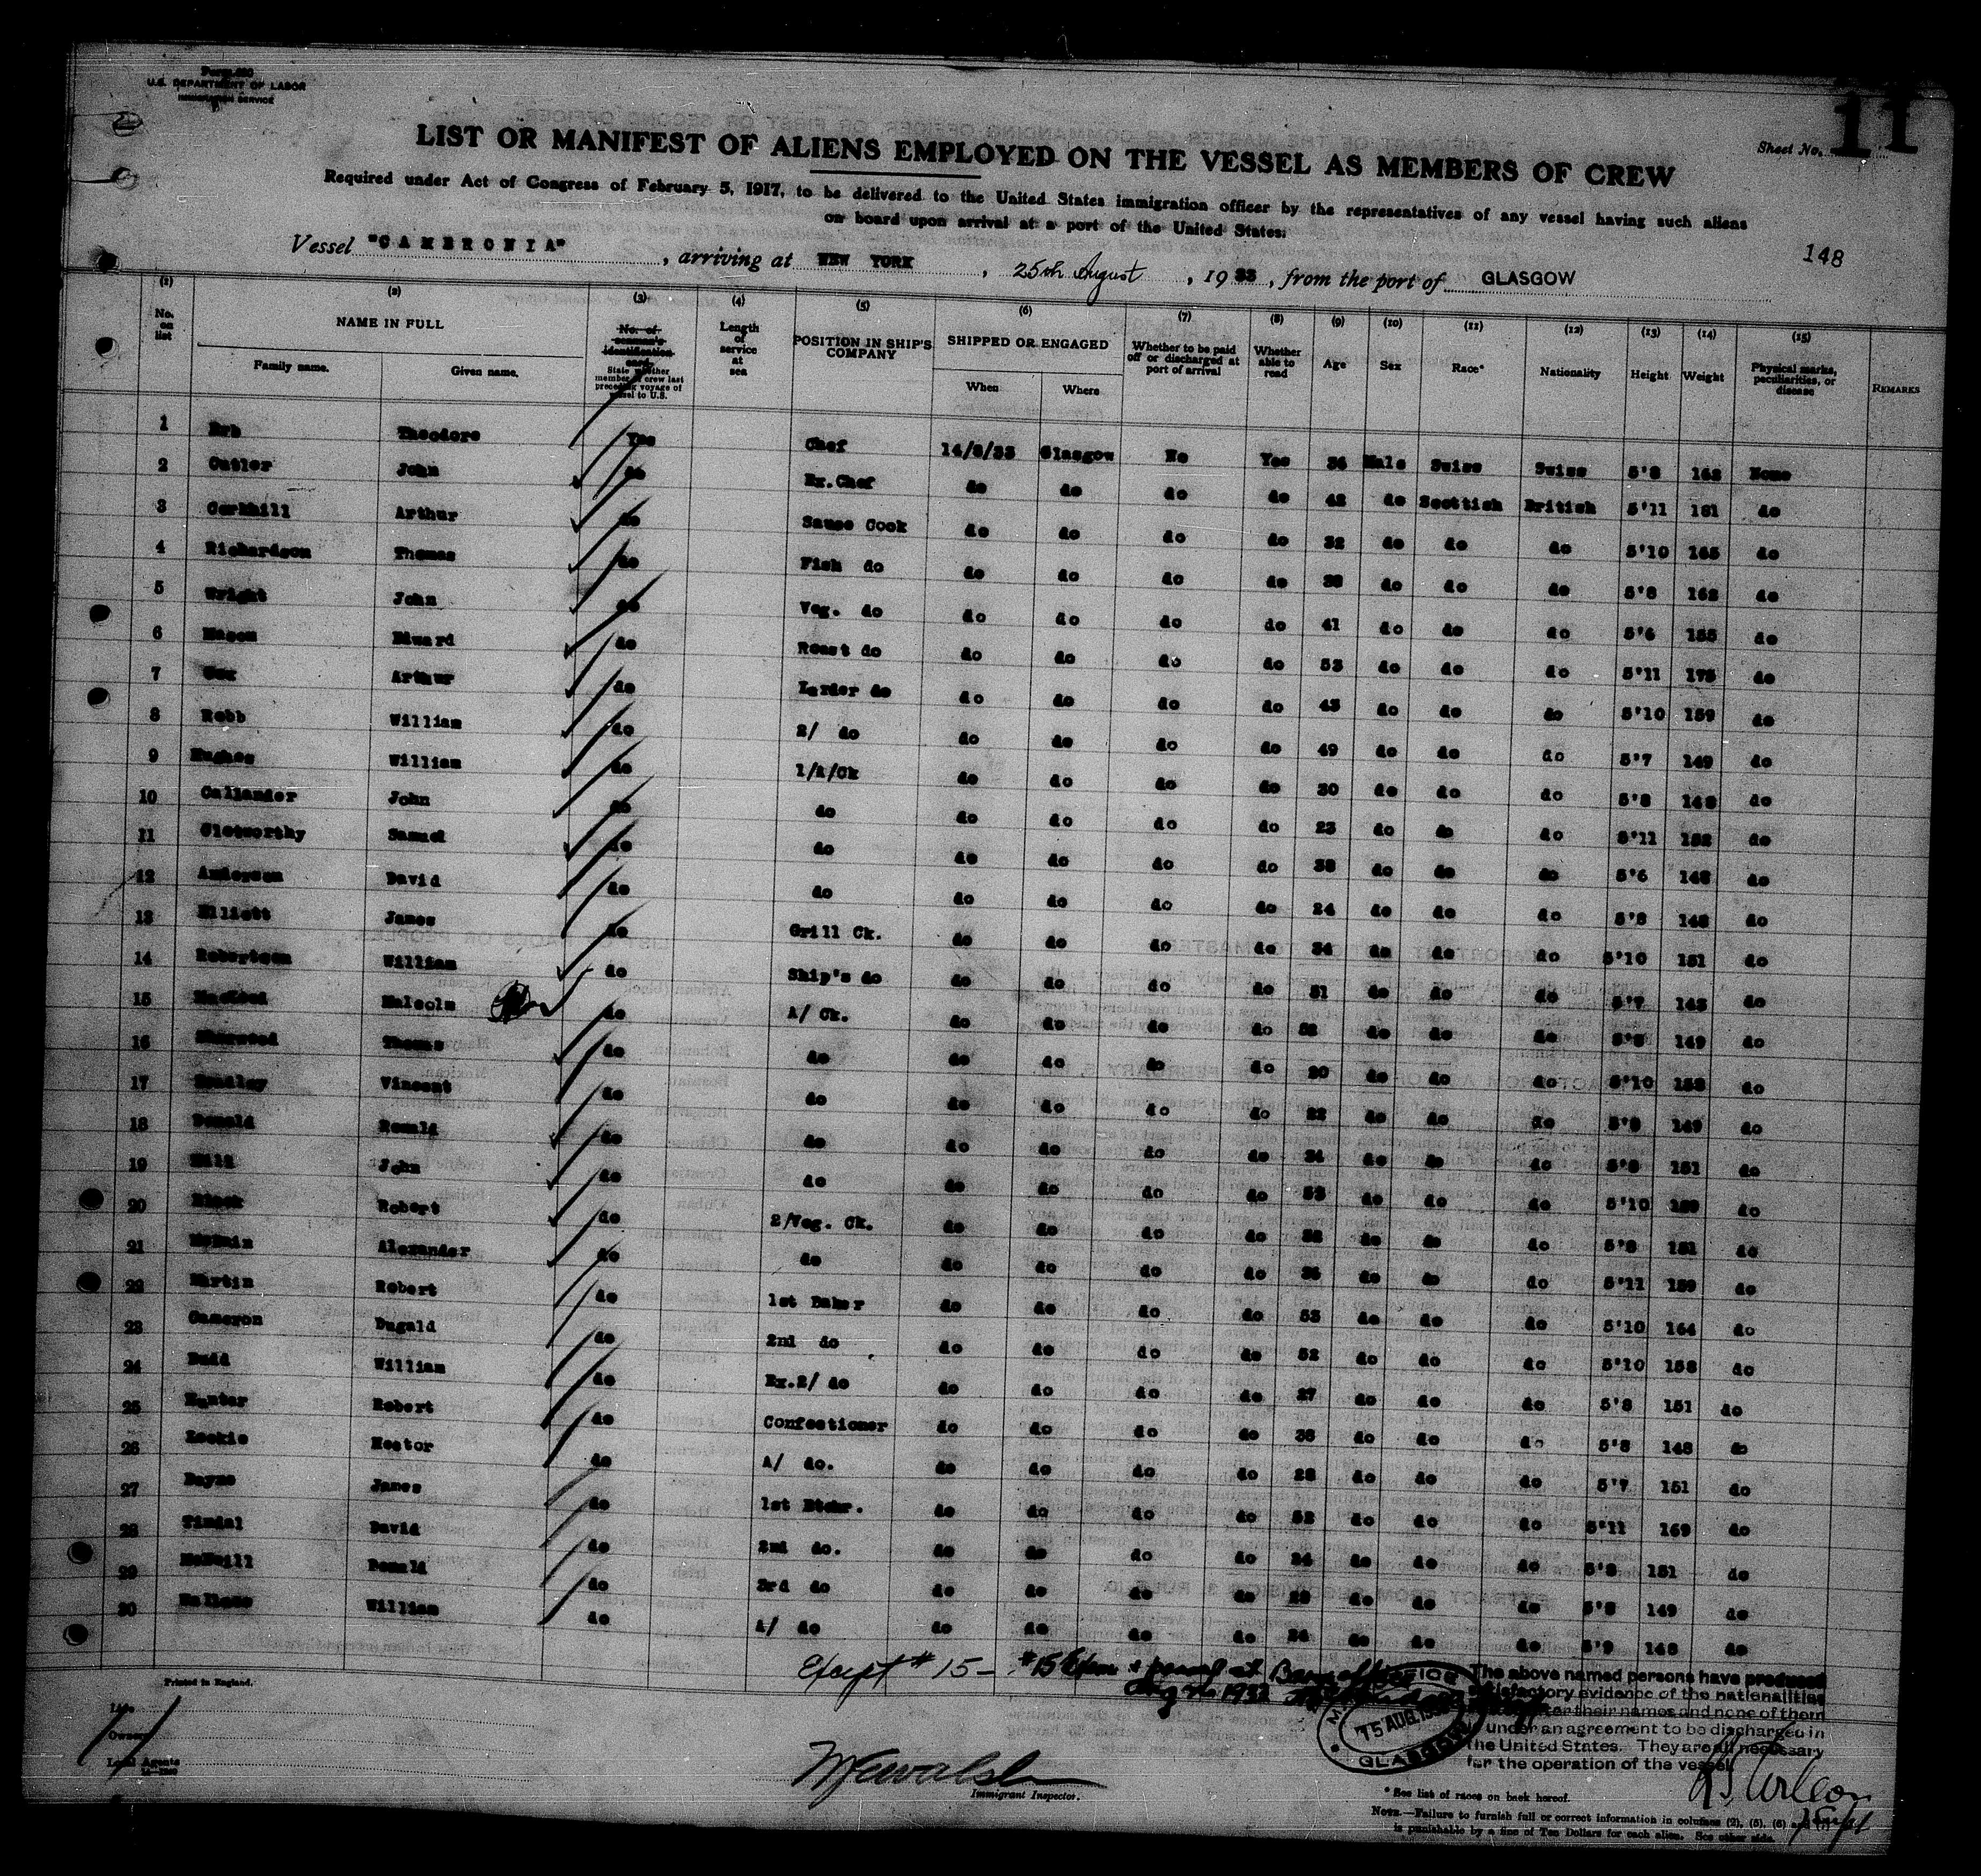 U.S. DEPARTMENT OF LABOR
IMMIGRATION SERVICE
Sheet No. 11
LIST OR MANIFEST OF ALIENS EMPLOYED ON THE VESSEL AS MEMBERS OF CREW
Required under Act of Congress of February 5, 1917, to be delivered to the United States immigration officer by the representatives of any vessel having such aliens
on board upon arrival at a port of the United States:
148
Vessel "CAMERONIA", arriving at NEW YORK, 25th August, 1933, from the port of GLASGOW
(1) (2) (3) (4) (5) (6) (7) (8) (9) (10) (11) (12) (13) (14) (15)
No. on list NAME IN FULL No. of seaman's identification card. State whether member of crew last preceding voyage of vessel to U.S. Length of service at sea POSITION IN SHIP'S COMPANY SHIPPED OR ENGAGED Whether to be paid off or discharged at port of arrival Whether able to read Age Sex Race* Nationality Height Weight Physical marks, peculiarities, or disease REMARKS
Family name. Given name. When Where
1 Erb Theodore Yes Chef 14/8/33 Glasgow No Yes 36 Male Swiss Swiss 5'8 162 None
2 Cutler John do Ex.Chef do do do do 42 do Scottish British 5'11 181 do
3 Corkhill Arthur do Sauce Cook do do do do 32 do do do 5'10 165 do
4 Richardson Thomas do Fish do do do do do do do do 5'8 162 do
5 Wright John do Veg. do do do do do 41 do do do 5'6 155 do
6 Mason Edward do Roast do do do do do 53 do do do 5'11 175 do
7 Cox Arthur do Larder do do do do do 43 do do do 5'10 159 do
8 Robb William do 2/ do do do do do 49 do do do 5'7 149 do
9 Hughes William do 1/A/Ck do do do do 30 do do do 5'8 148 do
10 Callander John do do do do do do 23 do do do 5'11 152 do
11 Clotworthy Samuel do do do do do do 38 do do do 5'6 148 do
12 Anderson David do do do do do do 24 do do do 5'8 148 do
13 Elliott James do Grill Ck. do do do do 34 do do do 5'10 151 do
14 Robertson William do Ship's do do do do do 51 do do do 5'7 148 do
15 MacLeod Malcolm do A/ Ck. do do do do do do do 149 do
16 Sherwood Thomas do do do do do do 20 do do do 5'10 do
17 Vincent do do do do do do 22 do do do 149 do
18 Donald Ronald do do do do do do do do do 151 do
19 Hill John do do do do do do do do do 5'10 do
20 Black Robert do 2/Veg. Ck. do do do do do do do 5'8 151 do
21 Alexander do do do do do do 36 do do do 5'11 159 do
22 Martin Robert do 1st Baker do do do do 53 do do do 5'10 164 do
23 Cameron Dugald do 2nd do do do do do 52 do do do 5'10 158 do
24 Dudd William do Ex.2/ do do do do do 27 do do do 5'8 151 do
25 Hunter Robert do Confectioner do do do do 36 do do do 5'8 148 do
26 Leckie Hector do A/ do. do do do do 28 do do do 5'7 151 do
27 Doyne James do 1st Btchr. do do do do 52 do do do 5'11 169 do
28 Tindal David do 2nd do. do do do do 24 do do do 151 do
29 McNeill Donald do 3rd do do do do do 29 do do do 5'8 149 do
30 William do A/ do do do do do 24 do do do 5'9 148 do
Except #15 - #15 Exam & passed at Barge office
Aug 26 1933
Printed in England.
Line
Owners
Local Agents
15 AUG 1933
GLASGOW
The above named persons have produced
satisfactory evidence of the nationalities
after their names and none of them
under an agreement to be discharged in
the United States. They are all necessary
for the operation of the vessel
Immigrant Inspector.
* See list of races on back hereof.
NOTE.—Failure to furnish full or correct information in columns (2), (5), (6)
is punishable by a fine of Ten Dollars for each alien. See other side.